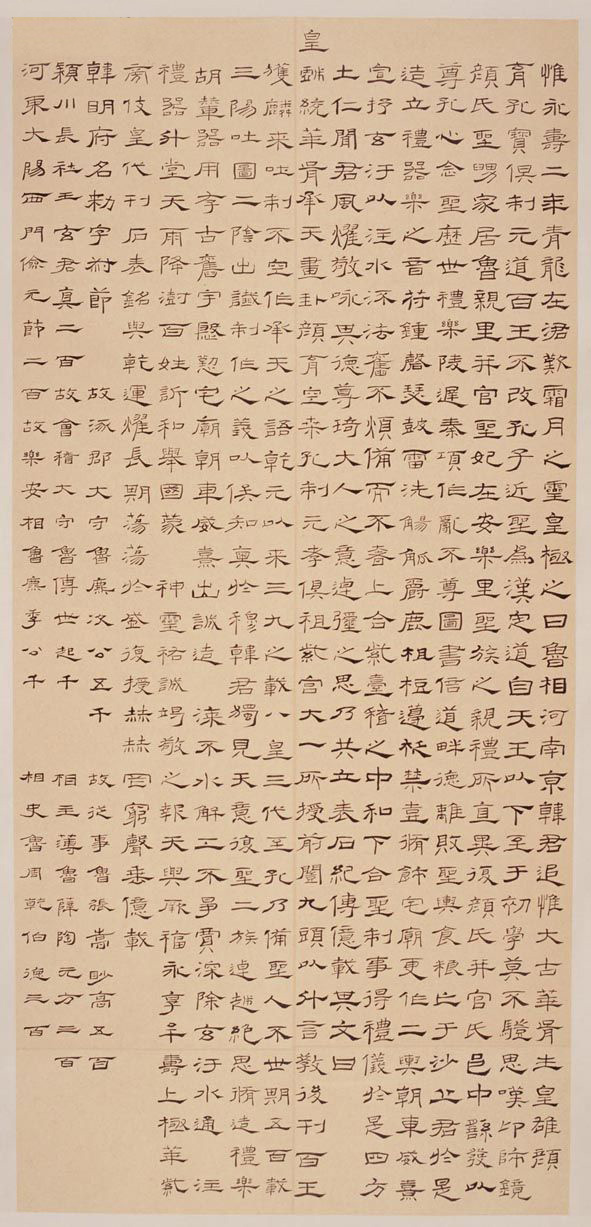 惟永壽二年青龍在涒歎霜月之靈皇極之日魯相河南京韓君追惟大古華胥生皇雄顏
育孔寶俱制元道百王不改孔子近聖為漢定道自天王以下至于初學莫不驖思嘆卬師鏡
顏氏聖舅家居魯親里并官聖妃在安樂里聖族之親禮所宜異復顏氏并官氏邑中繇發以
尊孔心念聖歷世禮樂陵遲秦項作亂不尊圖書倍道畔德離敗聖輿食糧亡于沙丘君於是
造立禮器樂之音符鍾磬瑟鼓雷洗觴觚爵鹿柤梪籩柉禁壹脩飾宅廟更作二輿朝車威熹
宣抒玄汙以注水流法舊不煩備而不奢上合紫臺稽之中和下合聖制事得禮儀於是四方
土仁聞君風燿敬咏其德尊琦大人之意逴彌之思乃共立表石紀傳億載其文曰
皇戲統華胥承天畫卦顏育空桑孔制元孝俱祖紫宮大一所授前闓九頭以什言教後刊百王
獲麟來吐制不空作承天之語乾元以來三九之載八皇三代至孔乃備聖人不世期五百載
三陽吐圖二陰出讖制作之義以俟知奧於穆韓君獨見天意復聖二族逴越絕思脩造禮樂
胡輦器用存古舊宇慇懃宅廟朝車威熹出誠造 漆不水解工不爭賈深除玄汙水通 注
禮器升堂天雨降澍百姓訢和舉國蒙 神靈祐誠竭敬之報天與厥福永享牟壽上極華紫
旁伎皇代刊石表銘與乾運燿長期蕩蕩於盛復授赫赫罔窮聲垂億載
韓明府名勑字叔節 故涿郡大守魯麃次公五千 故從事魯張嵩眇高五百
潁川長社王玄君真二百 故會稽大守魯傅世起千 相主薄魯薛陶元方三百
河東大陽西門儉元節二百 故樂安相魯麃季公千 相史魯周乾伯德三百